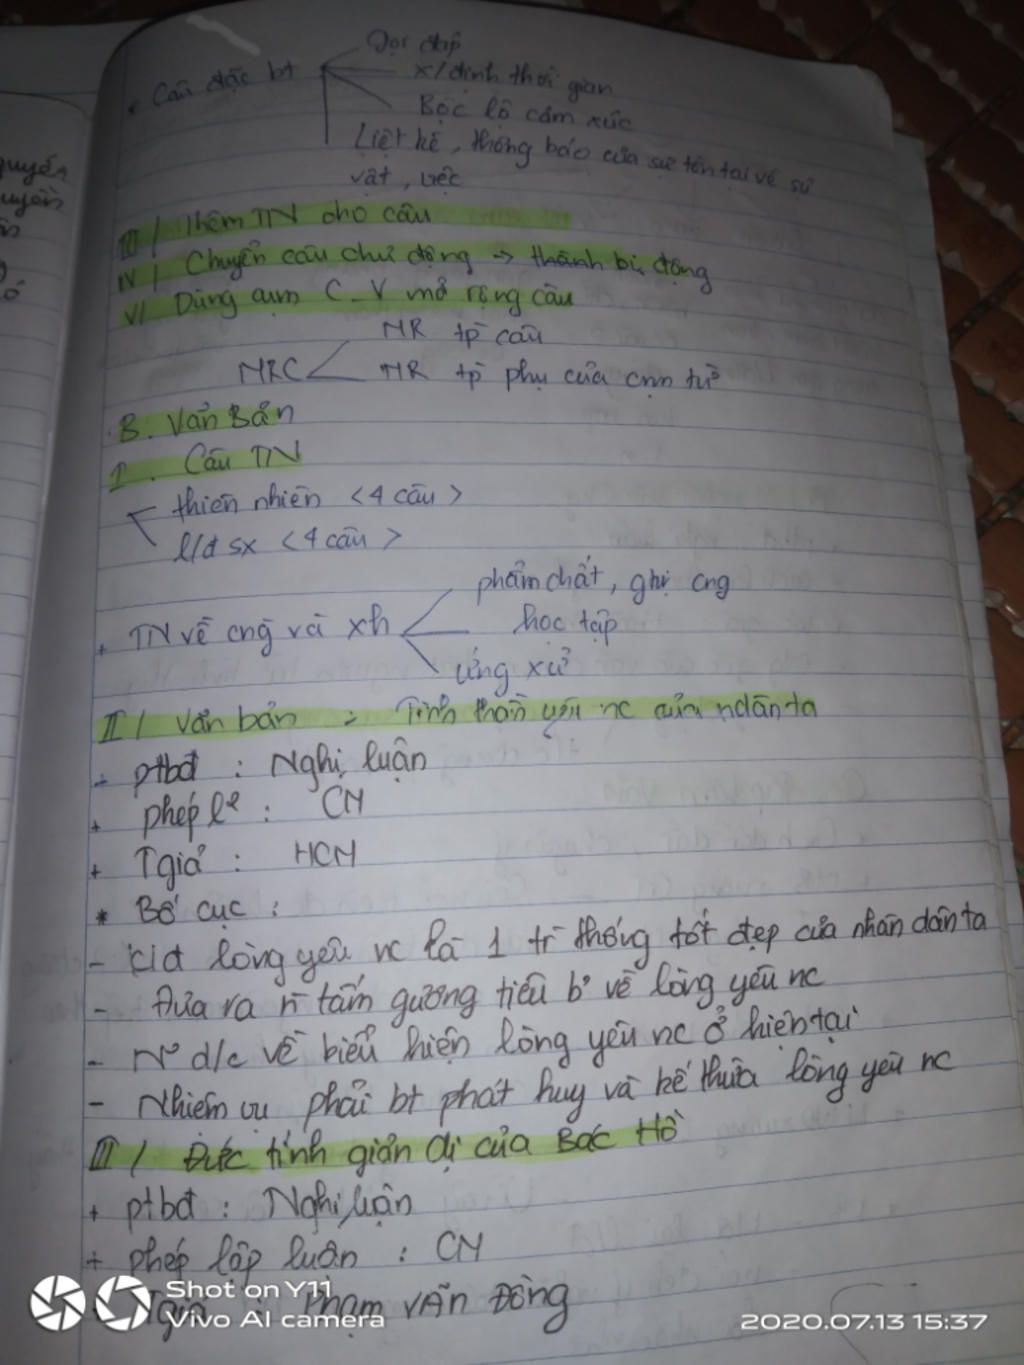 Gọi đáp
* Câu đặc bt x/định thời gian
Bộc lộ cảm xúc
Liệt kê, thông báo của sự tồn tại về sự
vật, việc
III / Thêm TN cho câu
IV / Chuyển câu chủ động → thành bị động
V / Dùng cụm C-V mở rộng câu
MR tp câu
MRC MR tp phụ của cụm từ
B. Văn Bản
I. Câu TN
thiên nhiên <4 câu>
l/đ sx <4 câu>
phẩm chất, ghị cng
+ TN về cng và xh học tập
ứng xử
II / Văn bản : Tinh thần yêu nc của ndân ta
+ ptbđ : Nghị luận
+ phép l² : CM
+ Tgiả : HCM
* Bố cục :
- k/đ lòng yêu nc là 1 tr thống tốt đẹp của nhân dân ta
- Đưa ra n tấm gương tiêu b' về lòng yêu nc
- N° d/c về biểu hiện lòng yêu nc ở hiện tại
- Nhiệm vụ phải bt phát huy và kế thừa lòng yêu nc
III / Đức tính giản dị của Bác Hồ
+ ptbđ : Nghị luận
+ phép lập luận : CM
Tgiả : Phạm Văn Đồng
Shot on Y11
Vivo AI camera
2020.07.13 15:37